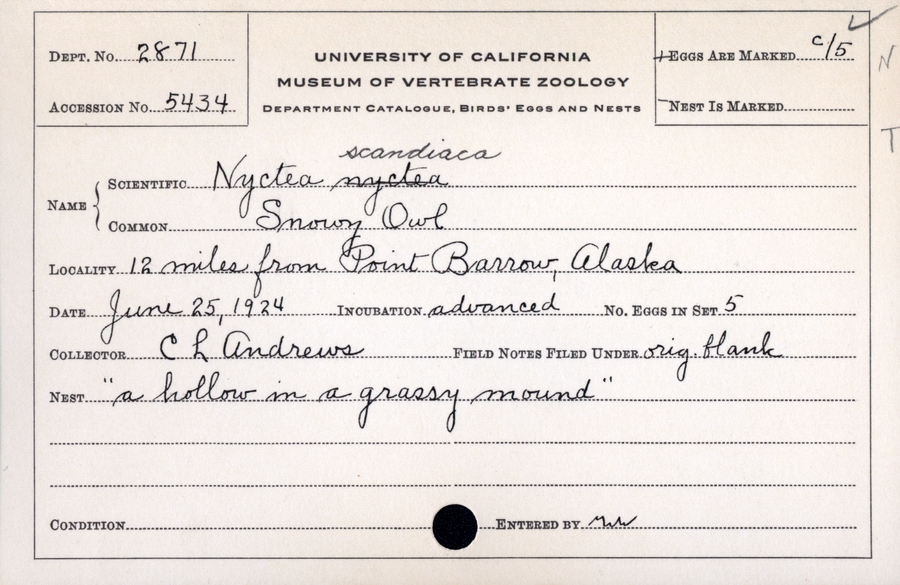 DEPT. NO. 2871
ACCESSION NO. 5434
UNIVERSITY OF CALIFORNIA
MUSEUM OF VERTEBRATE ZOOLOGY
DEPARTMENT CATALOGUE, BIRDS' EGGS AND NESTS
EGGS ARE MARKED c/5
NEST IS MARKED
N
T
scandiaca
NAME
SCIENTIFIC Nyctea nyctea
COMMON Snowy Owl
LOCALITY 12 miles from Point Barrow, Alaska
DATE June 25, 1924 INCUBATION advanced NO. EGGS IN SET 5
COLLECTOR C L Andrews FIELD NOTES FILED UNDER orig. blank
NEST "a hollow in a grassy mound"
CONDITION ENTERED BY